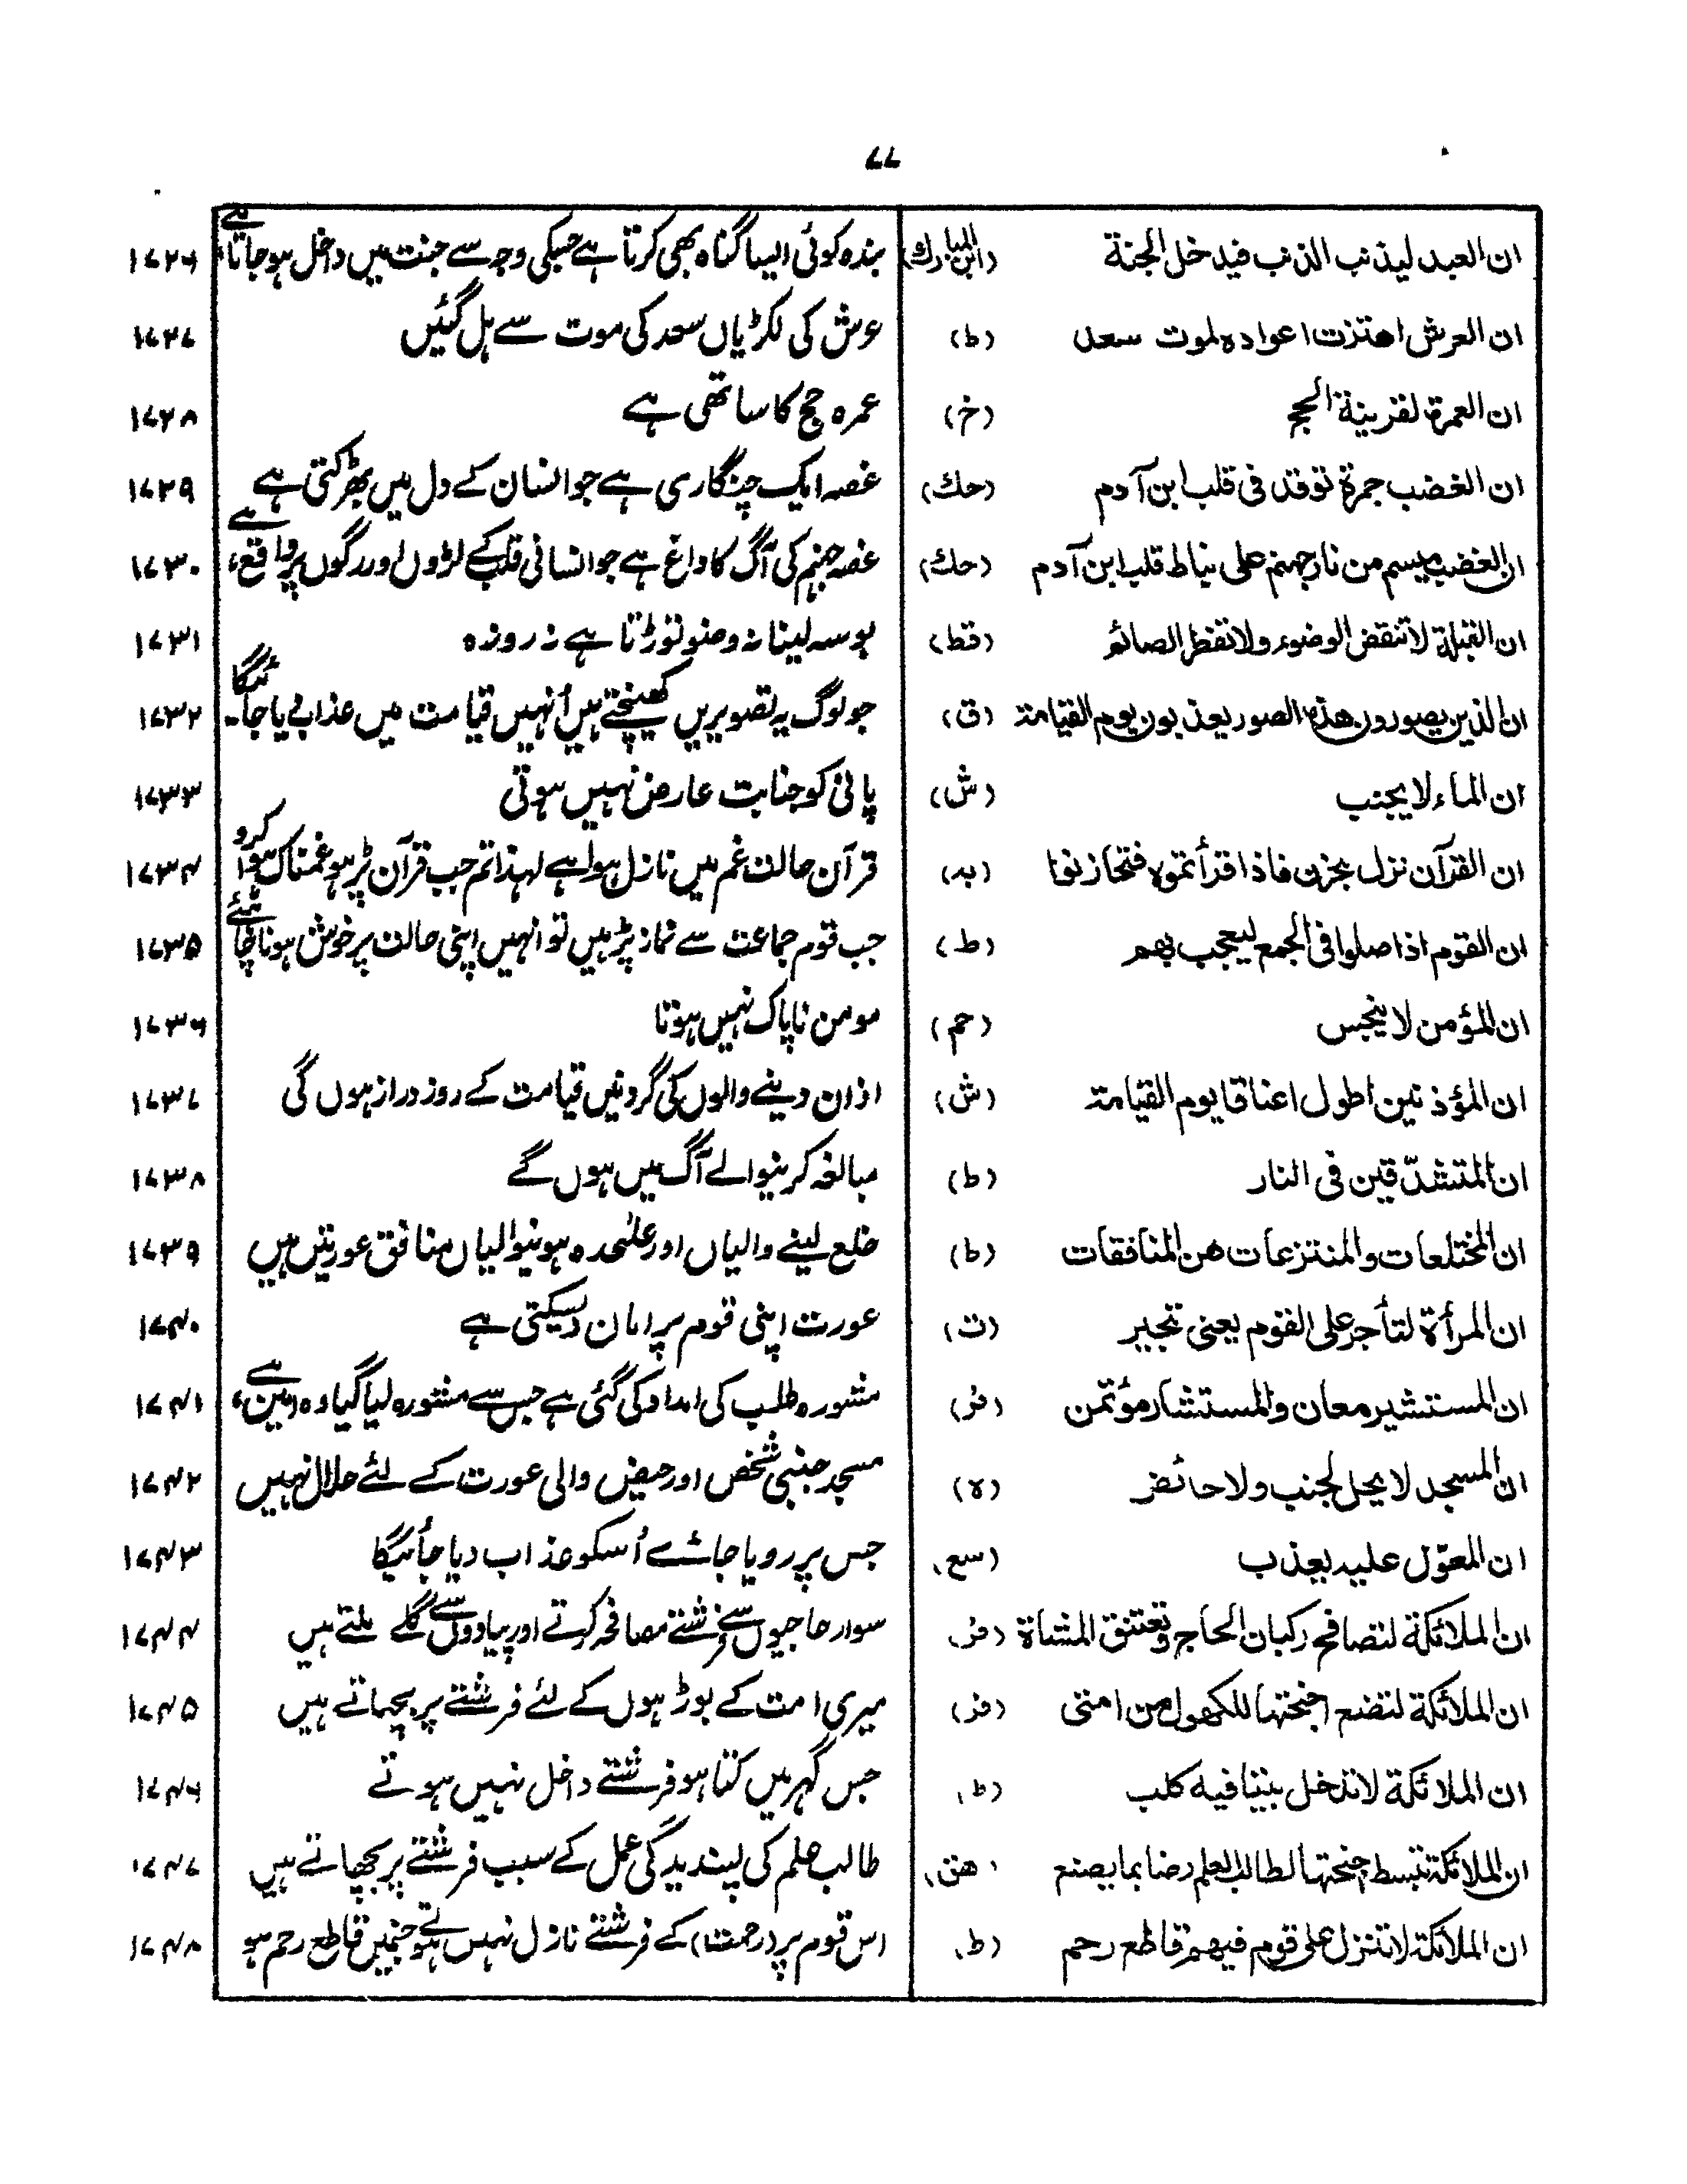 ۷۷
ان العبد ليذنب الذنب فيدخل الجنة (ابن المبارك) بندہ کوئی ایسا گناہ بھی کرتا ہے جسکی وجہ سے جنت میں داخل ہو جاتا ہے ۱۷۲۶
ان العرش اهتزت اعواده لموت سعد (ط) عرش کی لکڑیاں سعد کی موت سے ہل گئیں ۱۷۲۷
ان العمرة لقرينة الحج (خ) عمرہ حج کا ساتھی ہے ۱۷۲۸
ان الغضب جمرة توقد فى قلب ابن آدم (حك) غصہ ایک چنگاری ہے جو انسان کے دل میں بھڑکتی ہے ۱۷۲۹
ان الغضب ميسم من نار جهنم على نياط قلب ابن آدم (حك) غصہ جہنم کی آگ کا داغ ہے جو انسانی قلب کے لڑوں اور رگوں پر واقع ہے ۱۷۳۰
ان القبلة لا تنقض الوضوء ولا تفطر الصائم (قط) بوسہ لینا نہ وضو توڑتا ہے نہ روزہ ۱۷۳۱
ان الذين يصورون هذه الصور يعذبون يوم القيامة (ق) جو لوگ یہ تصویریں کھینچتے ہیں اُنہیں قیامت میں عذاب دیا جائیگا ۱۷۳۲
ان الماء لا يجنب (ش) پانی کو جنابت عارض نہیں ہوتی ۱۷۳۳
ان القرآن نزل بحزن فاذا قرأتموه فتحازنوا (بد) قرآن حالت غم میں نازل ہوا ہے لہذا تم جب قرآن پڑہو غمناک ہوا کرو ۱۷۳۴
ان القوم اذا صلوا فى الجمع ليعجب بهم (ط) جب قوم جماعت سے نماز پڑہیں تو انہیں اپنی حالت پر خوش ہونا چاہئے ۱۷۳۵
ان المؤمن لا ينجس (حم) مومن ناپاک نہیں ہوتا ۱۷۳۶
ان المؤذنين اطول اعناقا يوم القيامة (ش) اذان دینے والوں کی گردنیں قیامت کے روز دراز ہوں گی ۱۷۳۷
ان المتشدّقين فى النار (ط) مبالغہ کرنیوالے آگ میں ہوں گے ۱۷۳۸
ان المختلعات والمنتزعات هن المنافقات (ط) خلع لینے والیاں اور علٰحدہ ہونیوالیاں منافق عورتیں ہیں ۱۷۳۹
ان المرأة لتأجر على القوم يعنى تجير (ت) عورت اپنی قوم پر امان دیسکتی ہے ۱۷۴۰
ان المستشير معان والمستشار مؤتمن (فر) مشورہ طلب کی امداد کی گئی ہے جس سے مشورہ لیا گیا وہ امین ہے ۱۷۴۱
ان المسجد لا يحل لجنب ولا حائض (ه) مسجد جنبی شخص اور حیض والی عورت کے لئے حلال نہیں ۱۷۴۲
ان المعوّل عليه يعذب (سع) جس پر رویا جائے اُسکو عذاب دیا جائیگا ۱۷۴۳
ان الملائكة لتصافح ركبان الحاج وتعتنق المشاة (فر) سوار حاجیوں سے فرشتے مصافحہ کرتے اور پیادوں سے گلے ملتے ہیں ۱۷۴۴
ان الملائكة لتضع اجنحتها للكهول من امتى (فر) میری امت کے بوڑہوں کے لئے فرشتے پر بچہاتے ہیں ۱۷۴۵
ان الملائكة لا تدخل بيتا فيه كلب (ط) جس گہر میں کتا ہو فرشتے داخل نہیں ہوتے ۱۷۴۶
ان الملائكة تبسط اجنحتها لطالب العلم رضا بما يصنع (هق) طالب علم کی پسندیدگی عمل کے سبب فرشتے پر بچھاتے ہیں ۱۷۴۷
ان الملائكة لا تنزل على قوم فيهم قاطع رحم (ط) اس قوم پر (رحمت) کے فرشتے نازل نہیں ہوتے جنمیں قاطع رحم ہو ۱۷۴۸